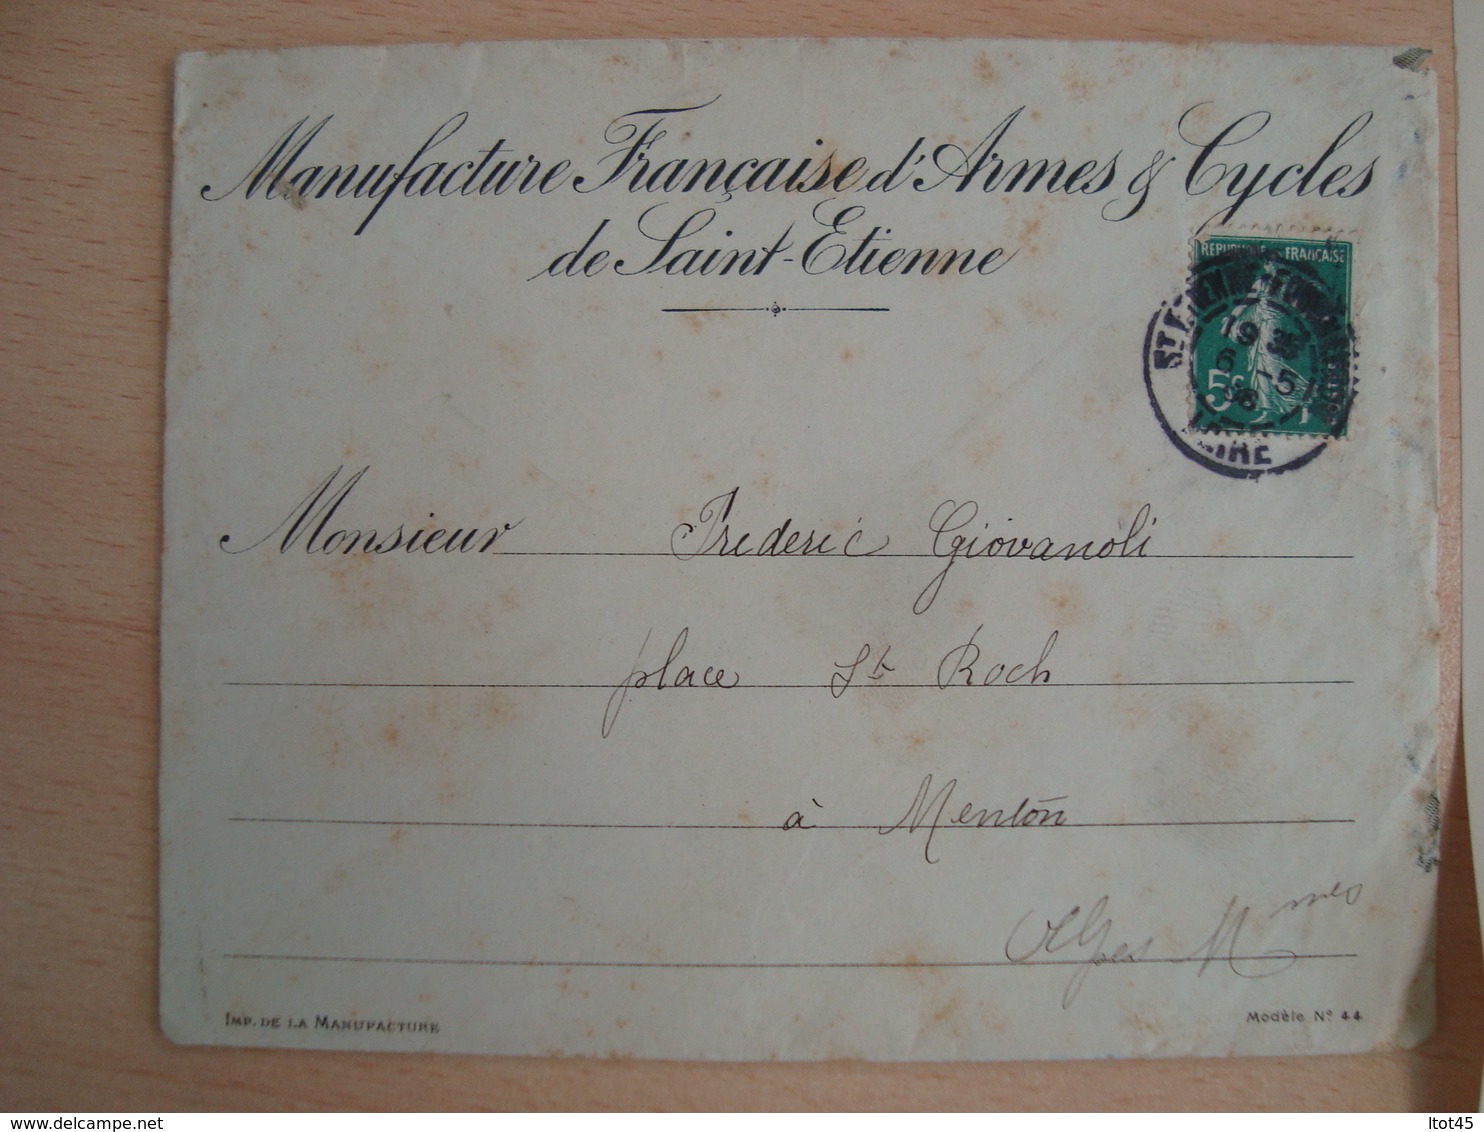 Manufacture Française d'Armes & Cycles
de Saint-Etienne
REPUBLIQUE FRANÇAISE
19 35
6 -5
5c
LOIRE
Monsieur Frederic Giovanoli
place St Roch
à Menton
Alpes Mmes
IMP. DE LA MANUFACTURE
Modèle No 44
ltot45